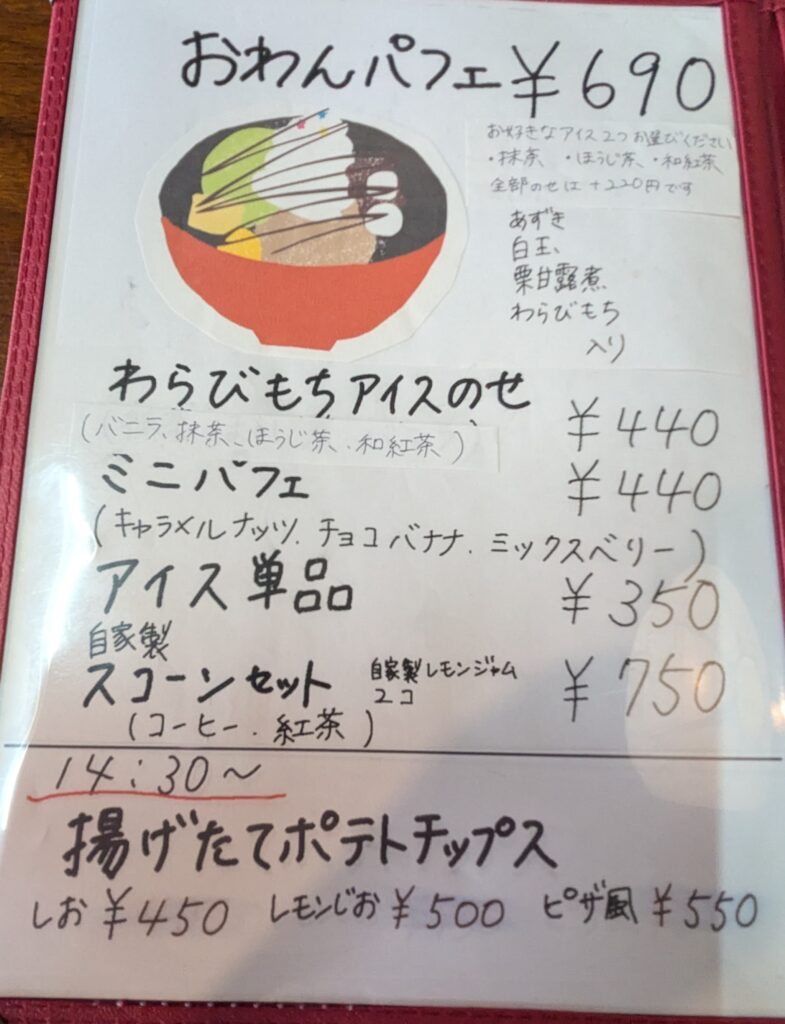 おわんパフェ ¥690
お好きなアイス2つお選びください
・抹茶 ・ほうじ茶、・和紅茶
全部のせは +220円です
あずき
白玉、
栗甘露煮
わらびもち
入り
わらびもちアイスのせ ¥440
(バニラ、抹茶、ほうじ茶、和紅茶)
ミニパフェ ¥440
(キャラメルナッツ、チョコバナナ、ミックスベリー)
アイス単品 ¥350
自家製
スコーンセット 自家製レモンジャム ¥750
2コ
(コーヒー・紅茶)
14:30〜
揚げたてポテトチップス
しお ¥450 レモンじお ¥500 ピザ風 ¥550